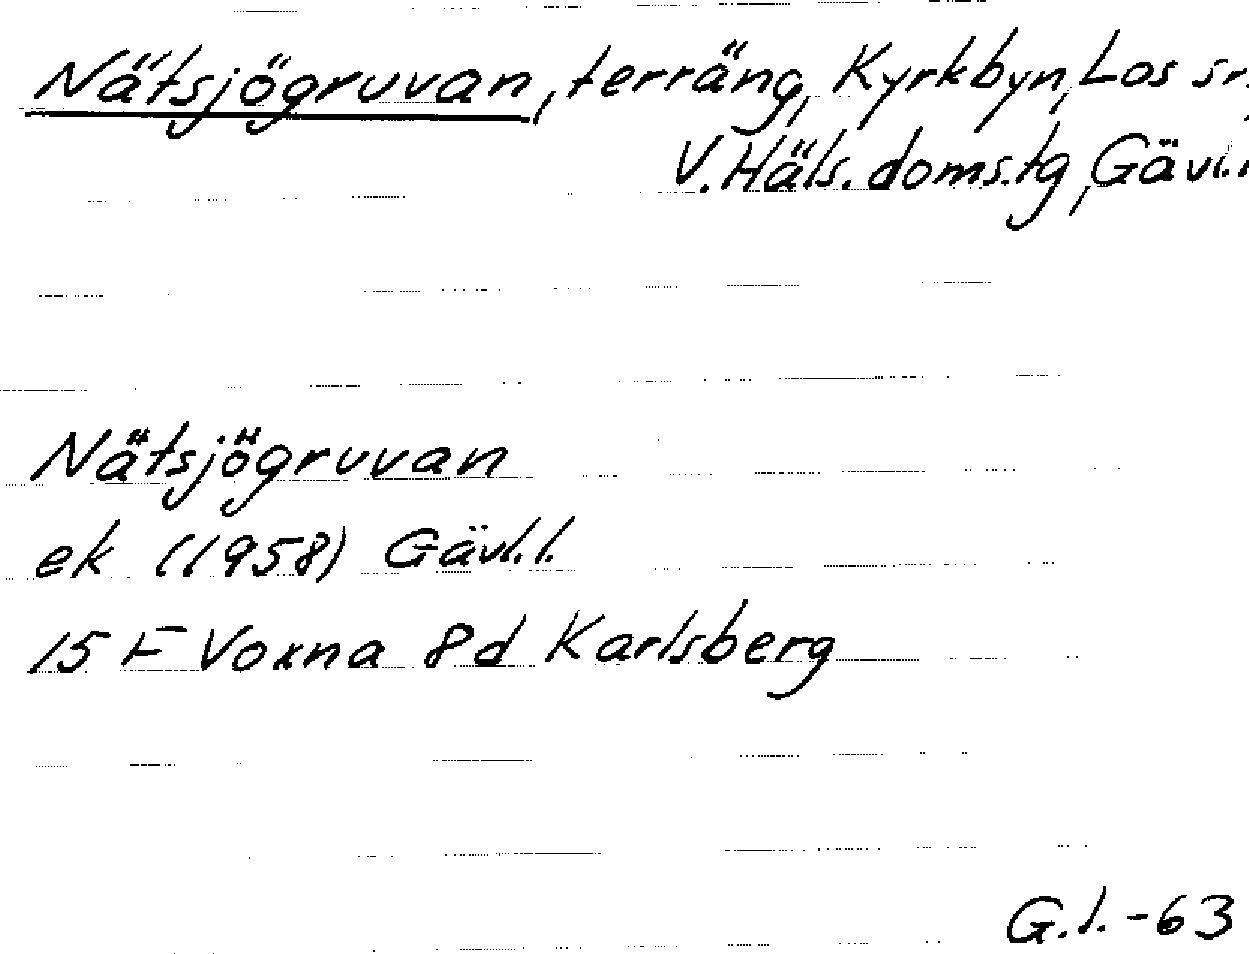 Nätsjögruvan, terräng, Kyrkbyn, Los sn,
V. Häls. doms.tg, Gävl.l
Nätsjögruvan
ek (1958) Gävl.l.
15 F Voxna 8d Karlsberg
G.l. -63